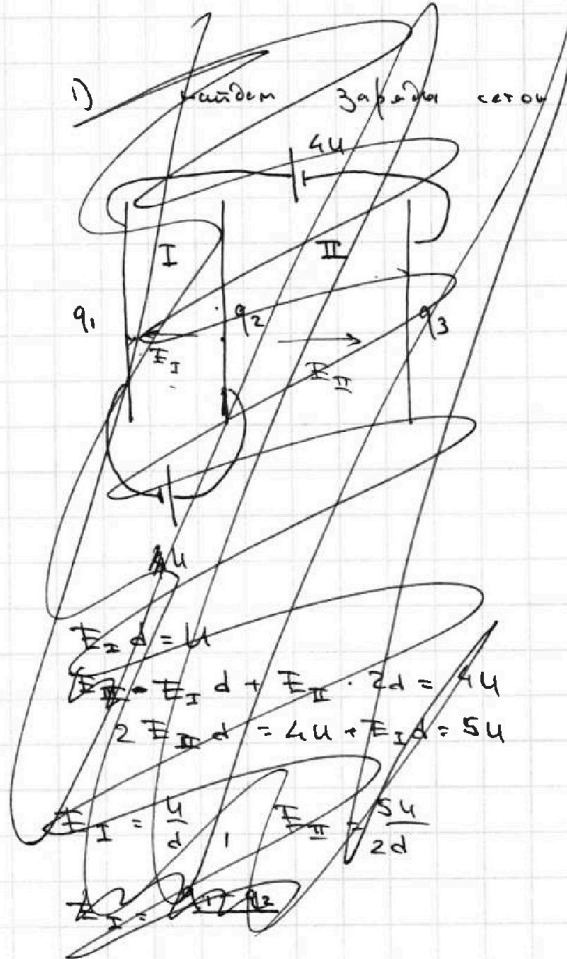 1) найдем заряды сеток
4U
I II
q₁ q₂ q₃
E_I E_II
U
E_I d = U
- E_I d + E_II · 2d = 4U
2 E_II d = 4U + E_I d = 5U
E_I = U/d , E_II = 5U/2d
E_I =